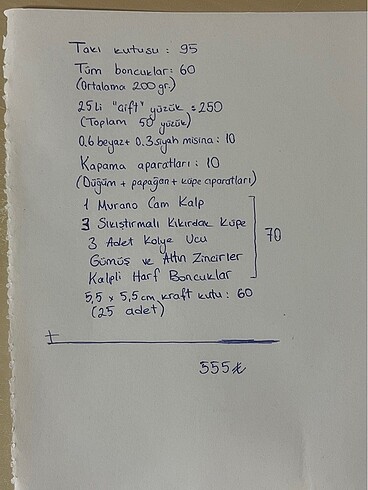 Takı kutusu : 95
Tüm boncuklar : 60
(Ortalama 200 gr.)
25 li "çift" yüzük = 250
(Toplam 50 yüzük)
0.6 beyaz + 0.3 siyah misina : 10
Kapama aparatları : 10
(Düğüm + papağan + küpe aparatları)
1 Murano Cam Kalp
3 Sıkıştırmalı Kıkırdak Küpe
3 Adet Kolye Ucu
70
Gümüş ve Altın Zincirler
Kalpli Harf Boncuklar
5,5 x 5,5 cm kraft kutu : 60
(25 adet)
+
555 ₺